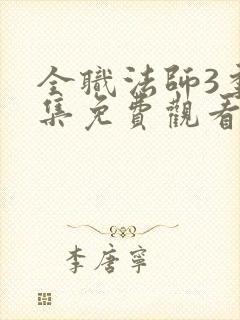 全職法師3季
集免費觀看
李唐寧